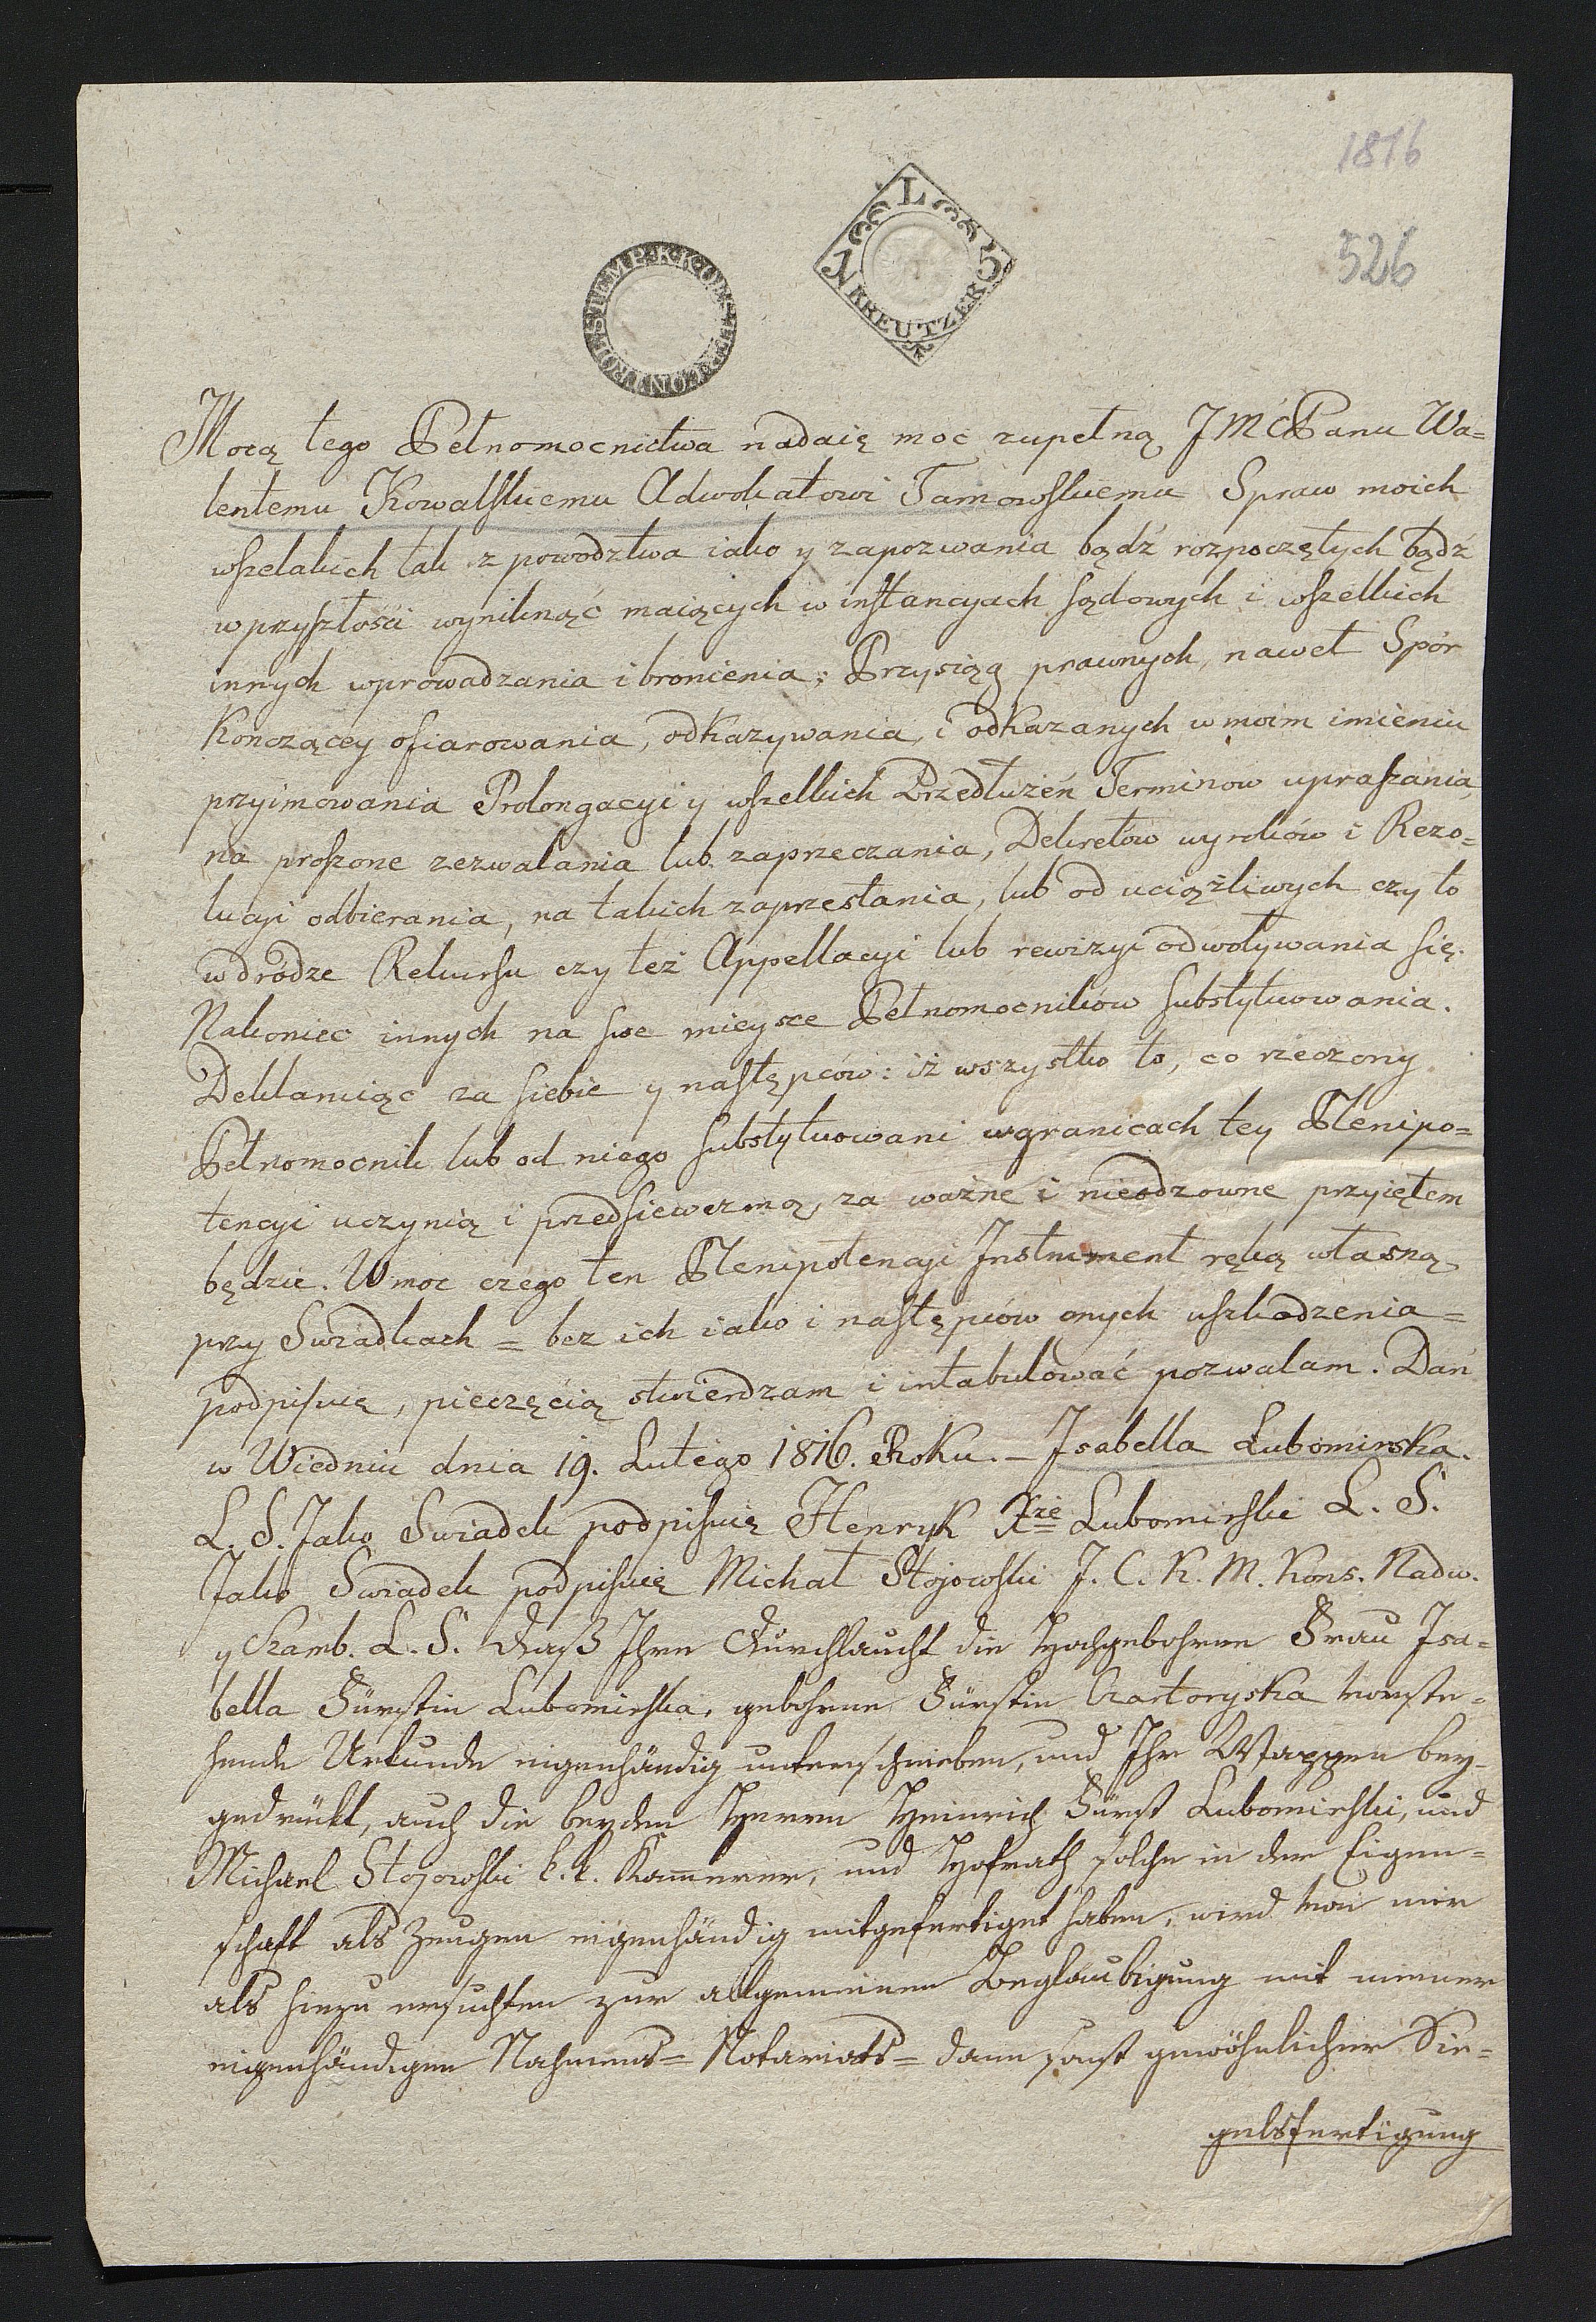 1816
526
L
15
KREUTZER
STEMP. K.K. CONTROL
Mocą tego Pełnomocnictwa nadaię moc zupełną JMĆ Panu Wa=
lentemu Kowalskiemu Adwokatowi Tarnowskiemu Spraw moich
wszelakich tak z powodztwa iako y zapozwania bądź rozpoczętych bądź
w przyszłości wyniknąć maiących w instancyach sądowych i wszelkich
innych wprowadzania i bronienia; Przysiąg prawnych, nawet Spór
Konczącey ofiarowania, odkazywania, i odkazanych w moim imieniu
przyimowania Prolongacyi y wszelkich Przedłużeń Terminow upraszania,
na proszone zezwalania lub zaprzeczania, Dekretów wyroków i Rezo=
lucyi odbierania, na takich zaprzestania, lub od uciążliwych czy to
w drodze Rekursu czy też Appellacyi lub rewizyi odwoływania się.
Nakoniec innych na swe mieysce Pełnomocników substytuowania.
Deklaruiąc za siebie y następców: iż wszystko to, co rzeczony
Pełnomocnik lub od niego substytuowani w granicach tey Plenipo=
tencyi uczynią i przedsiewezmą, za ważne i nieodzowne przyiętem
będzie. W moc czego ten Plenipotencyi Instrument ręką własną
przy Swiadkach = bez ich iako i następców onych uszkodzenia =
podpisuię, pieczęcią stwierdzam i intabulować pozwalam. Dań
w Wiedniu dnia 19. Lutego 1816. Roku. – Isabella Lubomirska.
L. S. Jako Swiadek podpisuię Henryk Xże Lubomirski L. S.
Jako Swiadek podpisuię Michał Stojowski J. C. K. M. Kons. Nadw.
y Szamb. L. S. Daß Ihre Durchlaucht die Hochgebohrne Frau Isa=
bella Fürstin Lubomirska, gebohrne Fürstin Czartoryska vorste=
hende Urkunde eigenhändig unterschrieben, und Ihr Wappen bey=
gedrükt, auch die beyden Herren Heinrich Fürst Lubomirski, und
Michael Stojowski k. k. Kammerer, und Hofrath solche in der Eigen=
schaft als Zeugen eigenhändig mitgefertiget haben, wird von mir
als hiezu ersuchten zur allgemeinen Beglaubigung mit meiner
eigenhändigen Nahmens= Notariats= dann sonst gewöhnlicher Sie=
gelsfertigung